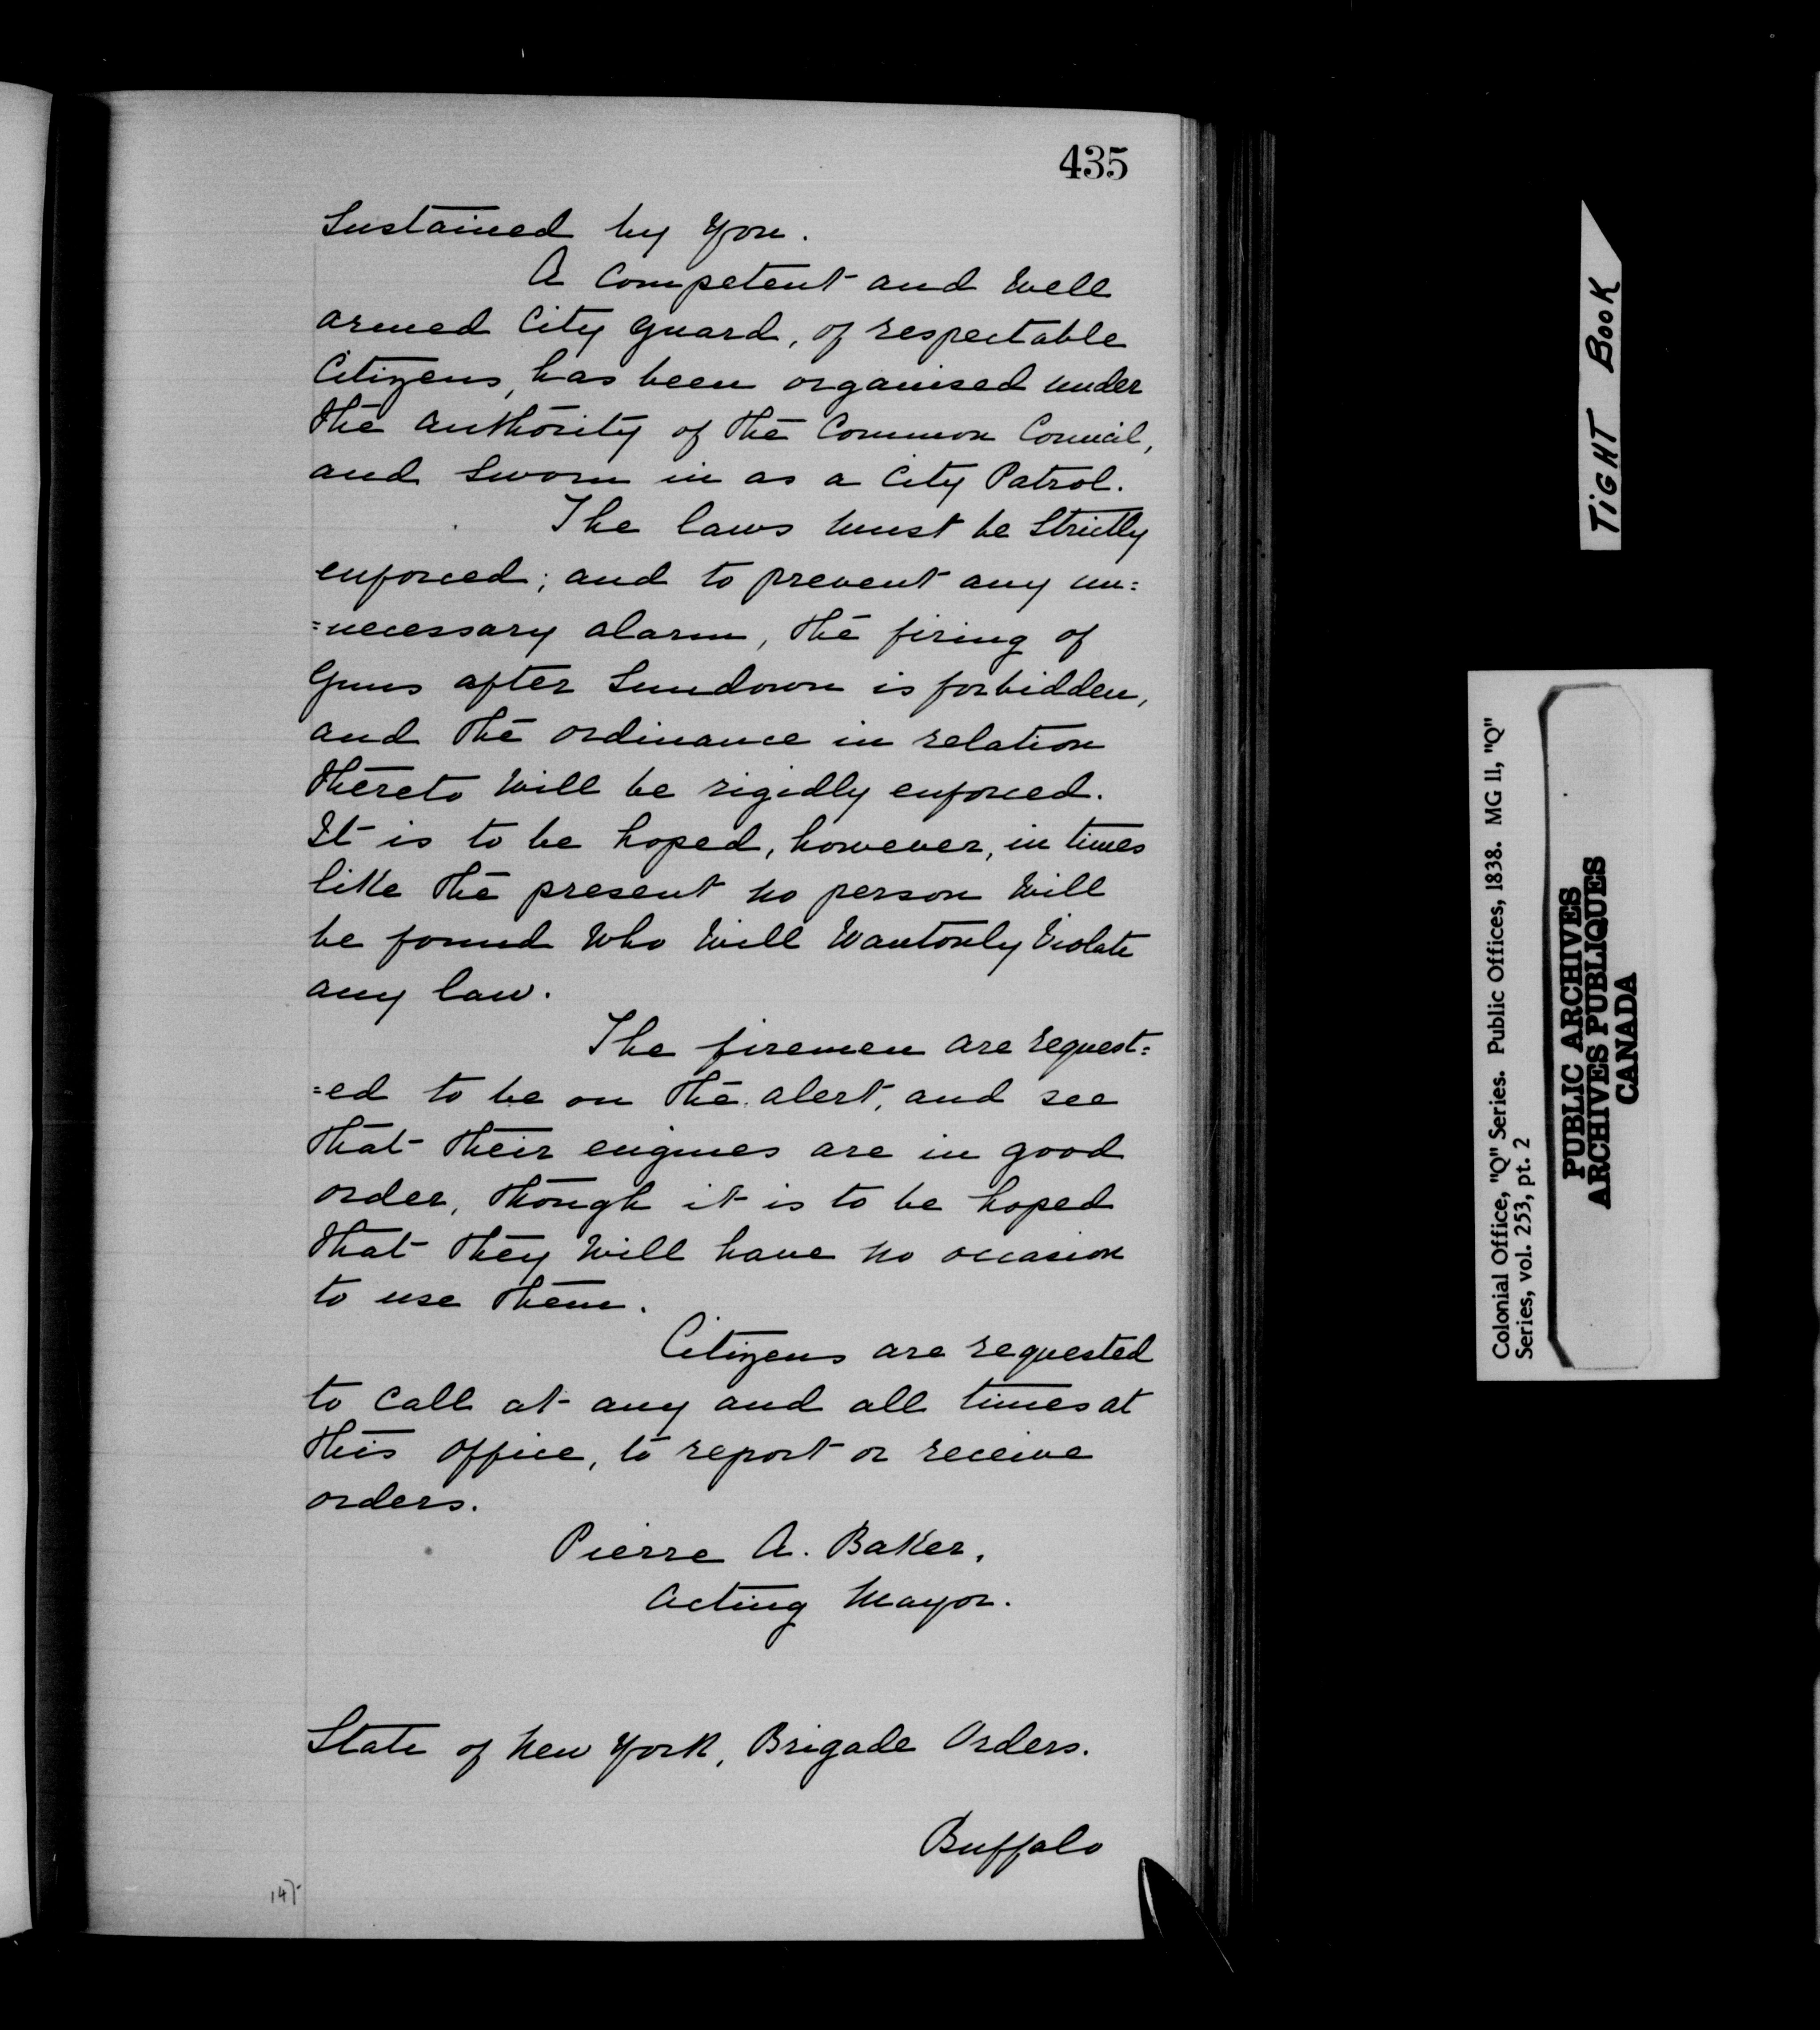 435
Sustained by You.
A Competent and Well
armed City Guard, of respectable
Citizens, has been organised under
the authority of the Common Council,
and Sworn in as a City Patrol.
The laws must be Strictly
enforced; and to prevent any un=
=necessary alarm, the firing of
Guns after Sundown is forbidden,
and the ordinance in relation
thereto Will be rigidly enforced.
It is to be hoped, however, in times
like the present no person Will
be found Who Will Wantonly Violate
any law.
The firemen are request=
=ed to be on the alert, and see
that their engines are in good
order, though it is to be hoped
that they Will have no occasion
to use them.
Citizens are requested
to Call at any and all times at
this Office, to report or receive
orders.
Pierre A. Baker,
Acting Mayor.
State of New York, Brigade Orders.
Buffalo
TiGHT BooK
Colonial Office, "Q" Series. Public Offices, 1838. MG 11, "Q"
Series, vol. 253, pt. 2
PUBLIC ARCHIVES
ARCHIVES PUBLIQUES
CANADA